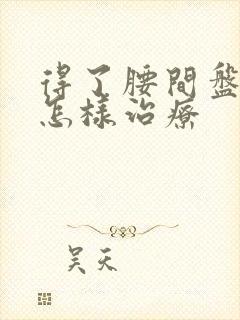 得了腰間盤
怎樣治療
吴天